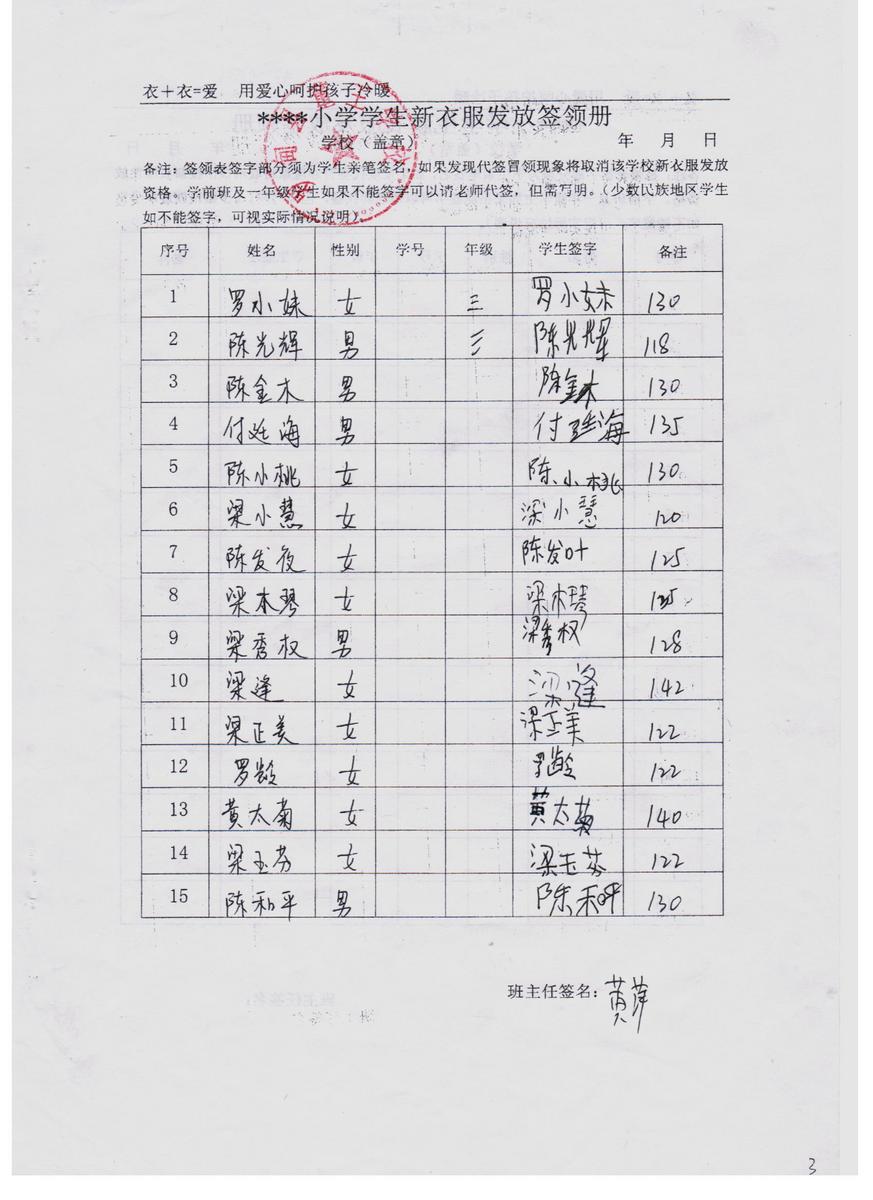 衣+衣=爱 用爱心呵护孩子冷暖
****小学学生新衣服发放签领册
学校（盖章） 年 月 日
备注：签领表签字部分须为学生亲笔签名，如果发现代签冒领现象将取消该学校新衣服发放
资格。学前班及一年级学生如果不能签字可以请老师代签，但需写明。（少数民族地区学生
如不能签字，可视实际情况说明）
序号 姓名 性别 学号 年级 学生签字 备注
1 罗小妹 女 三 罗小妹 130
2 陈光辉 男 三 陈光辉 118
3 陈金木 男 陈金木 130
4 付廷海 男 付廷海 135
5 陈小桃 女 陈小桃 130
6 梁小慧 女 梁小慧 120
7 陈发夜 女 陈发叶 125
8 梁木琴 女 梁木琴 125
9 梁秀权 男 梁秀权 128
10 梁逢 女 142
11 梁正美 女 梁正美 122
12 罗龄 女 罗龄 122
13 黄太菊 女 黄太菊 140
14 梁玉芬 女 梁玉芬 122
15 陈和平 男 陈和平 130
班主任签名：黄萍
3